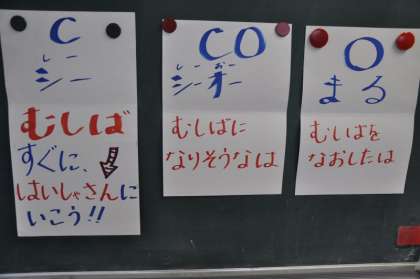 C
シー
むしば
すぐに、
はいしゃさんに
いこう!!
CO
しーおー
シーオー
むしばに
なりそうなは
O
まる
むしばを
なおしたは